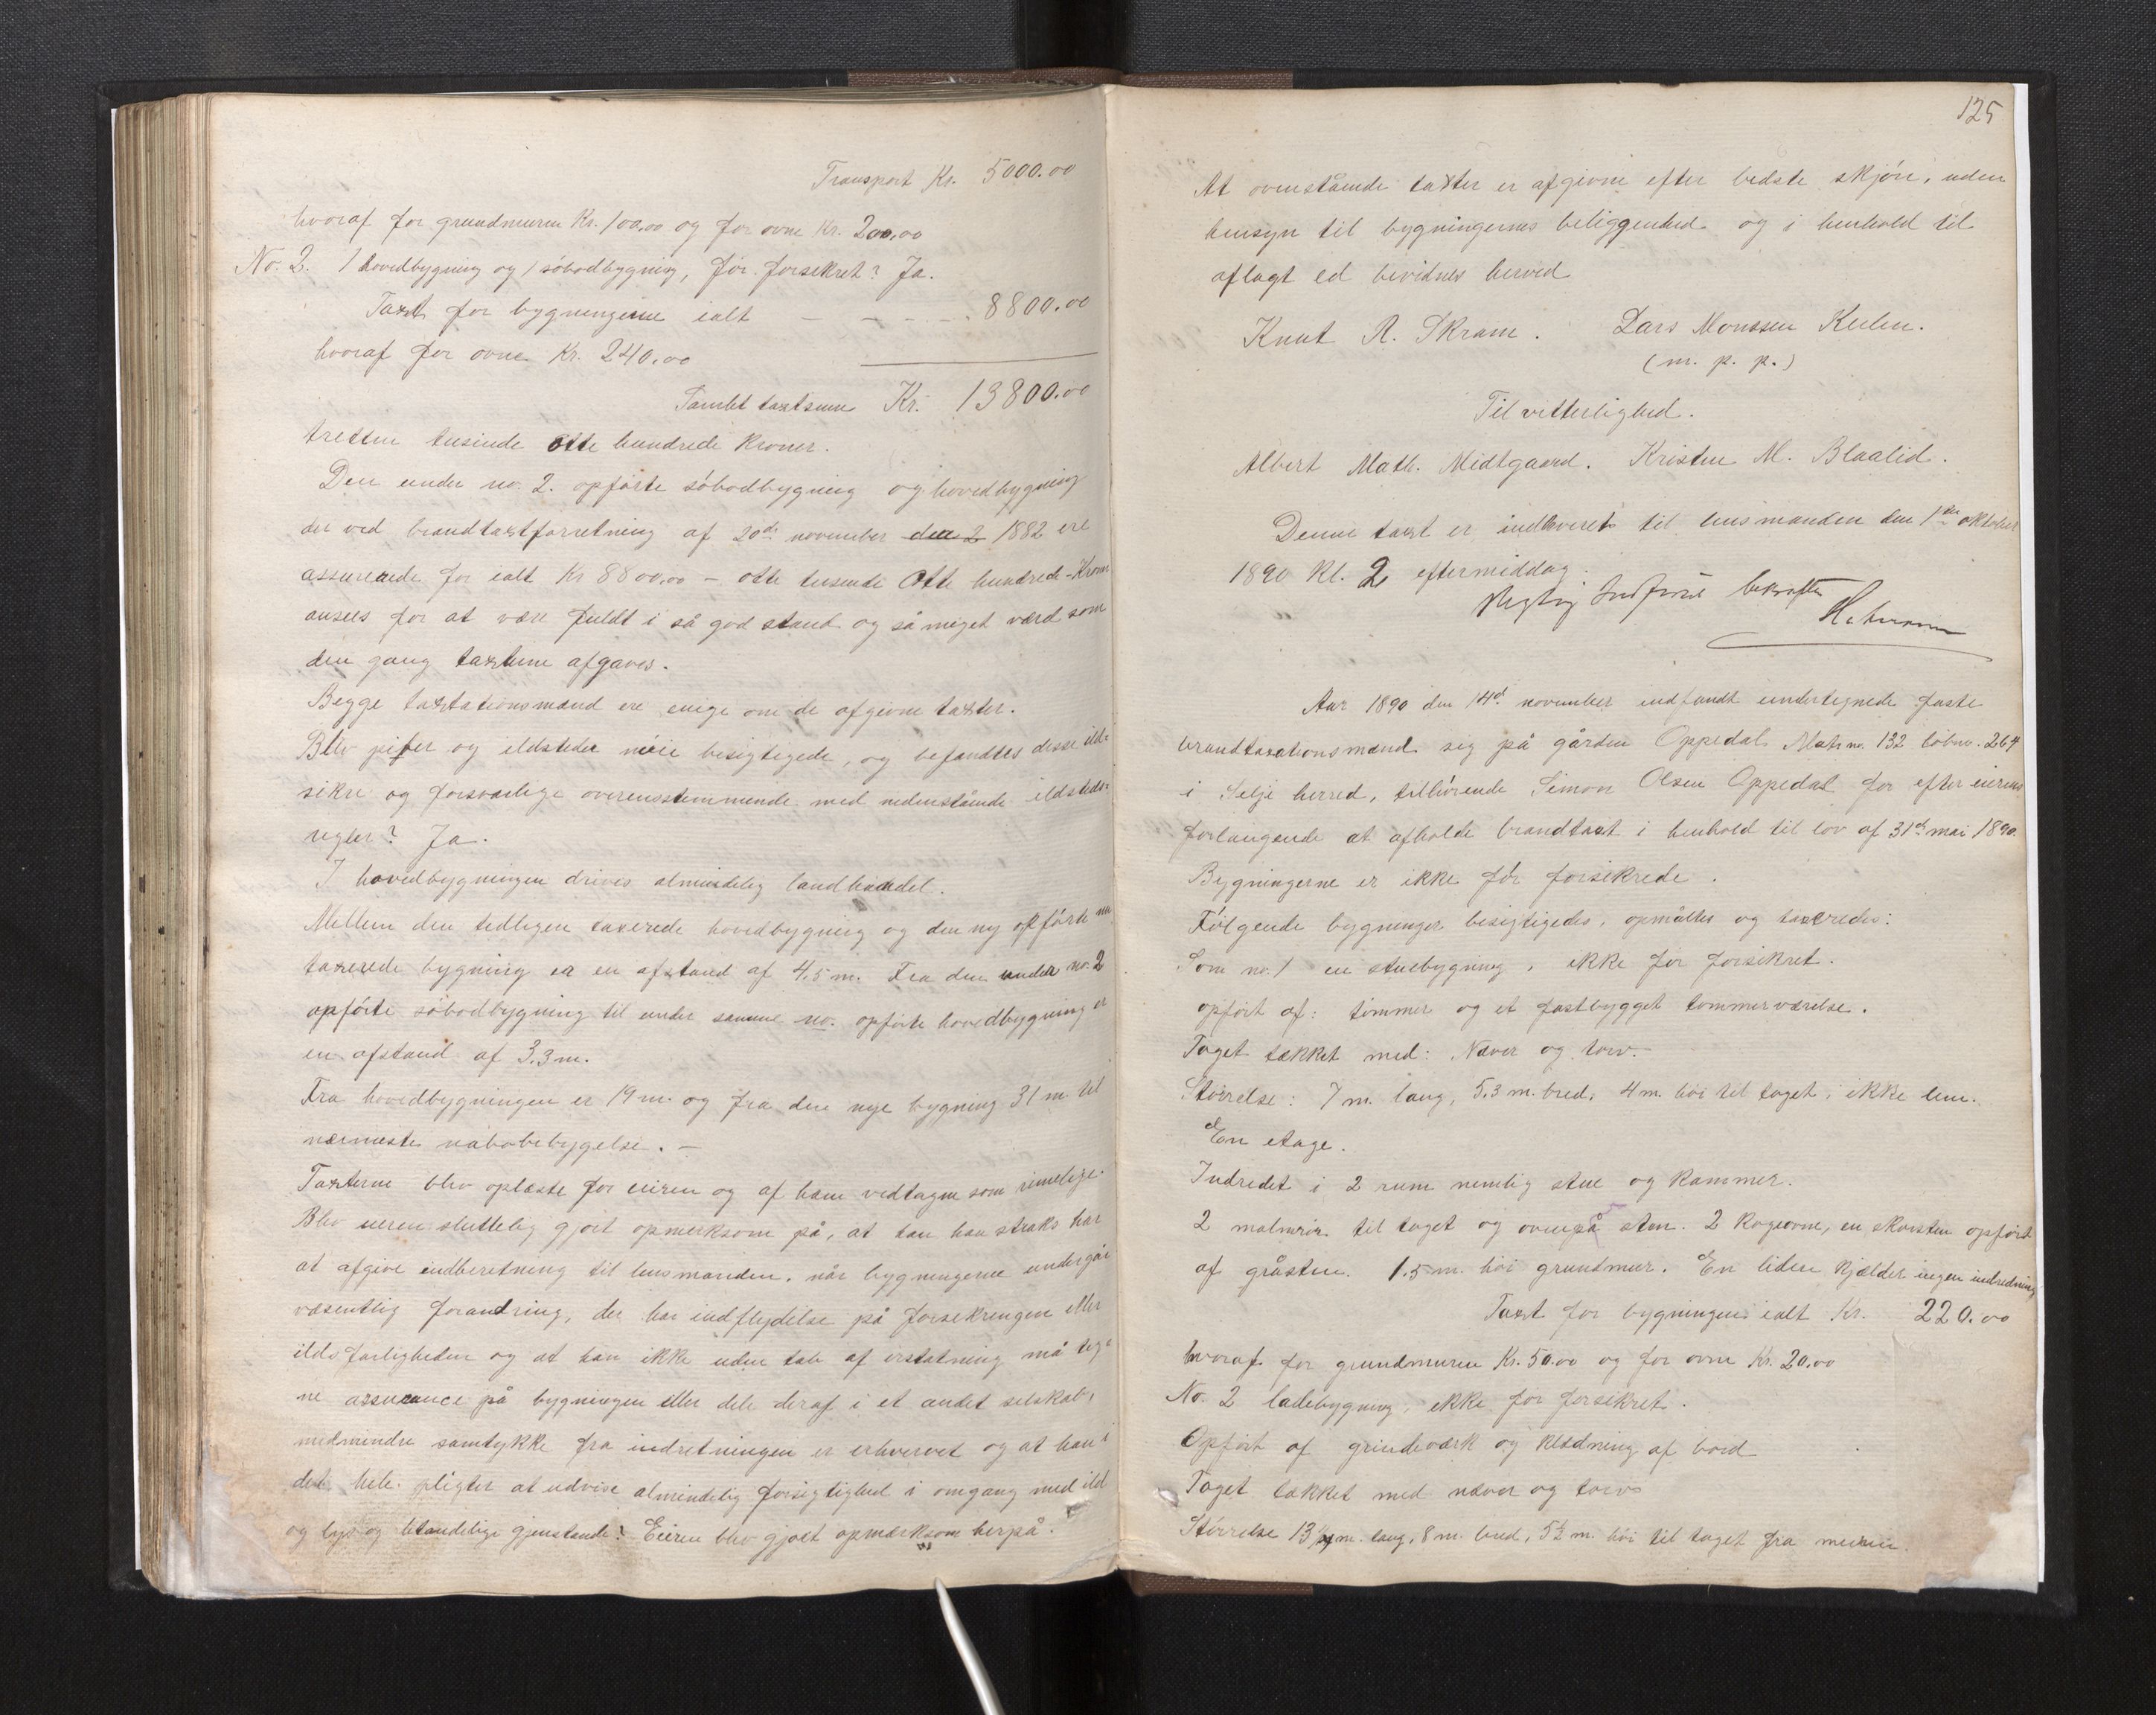 Transport Kr. 5000.00
hvoraf for grundmuren Kr. 100,00 og for ovne Kr. 200,00
No. 2. 1 hovedbygning og 1 söbodbygning, för forsekret? Ja.
Taxt for bygningerne ialt — — — — 8800.00
hvoraf for ovne Kr. 240,00
Samlet taxtsum Kr. 13800.00
tretten tusinde otte hundrede Kroner.
Den under no. 2. opförte söbodbygning og hovedbygning
der ved brandtaxtforretning af 20de november den 2 1882 ere
assurerede for ialt Kr 8800,00 – otte tusende otte hundrede Kroner
ansees for at være fuldt i så god stand og så meget værd som
den gang taxterne afgaves.
Begge taxtationsmænd ere enige om de afgivne taxter.
Blev piber og ildsteder nöie besigtegede, og befandtes disse ild-
sikre og forsvarlige overensstemmende med nedenstående ildsteds-
regler? Ja.
I hovedbygningen drives almindelig landhandel.
Mellem den tidligere taxerede hovedbygning og den ny opförte nu
taxerede bygning er en afstand af 4.5 m. Fra den under no. 2
opförte söbodbygning til under samme no. opförte hovedbygning er
en afstand af 3.3 m.
Fra hovedbygningen er 19 m. og fra den nye bygning 31 m til
nærmeste nabobebygelse. –
Taxterne blev oplæste for eieren og af ham vedtagne som rimelige.
Blev eieren sluttelig gjort opmerksom på, at han straks har
at afgive indberetning til lensmanden, når bygningerne undergår
væsentlig forandring, der har indflydelse på forsekringen eller
ildsfarligheden og at han ikke uden tab af erstatning må teg-
ne assurance på bygningen eller dele deraf i et andet selskab,
medmindre samtykke fra indretningen er erhvervet og at han i
det hele pligter at udvise almindelig forsigtighed i omgang med ild
og lys og antændelige gjenstande? Eieren blev gjort opmærksom herpå.
125
At ovenstående taxter er afgivne efter bedste skjön, uden
hensyn til bygningernes beliggenhed og i henhold til
aflagt ed bevidnes herved
Knut R. Skram. Lars Monssen Keilen.
(m. p. p.)
Til vitterlighed.
Albert Math. Midtgaard. Kristen M. Blaalid.
Denne taxt er indleveret til lensmanden den 1ste oktober
1890 Kl. 2 eftermiddag.
Rigtig Indförsel bekræftes
Aar 1890 den 14de november indfandt undertegnede faste
brandtaxationsmænd sig på gården Oppedal Matr no. 132 löbno. 264
i Selje herred, tilhörende Simon Olsen Oppedal for efter eierens
forlangende at afholde brandtaxt i henhold til lov af 31de mai 1890.
Bygningerne er ikke för forsikrede.
Fölgende bygninger besigtigedes, opmåltes og taxeredes:
Som no. 1 en stuebygning, ikke för forsikret.
opfört af: tömmer og et fastbygget tommerværelse.
Taget tækket med: Næver og torv.
Störrelse: 7 m. lang, 5.3 m. bred, 4 m. höi til taget, ikke lem.
En etage.
Indredet i 2 rum nemlig stue og kammer.
2 malmrör til taget og ovenpå sten. 2 Kogeovne, en skorsten opfört
af gråsten. 1.5 m. höi grundmur. En liden kjælder ingen indredning
Taxt for bygningen ialt Kr. 220.00
hvoraf for grundmuren Kr. 50.00 og for ovne Kr. 20.00
No. 2 ladebygning, ikke för forsekret.
Opfört af grindværk og klædning af bord
Taget tækket med næver og torv
Störrelse 13 m. lang, 8 m. bred, 5½ m. höi til taget fra muren.